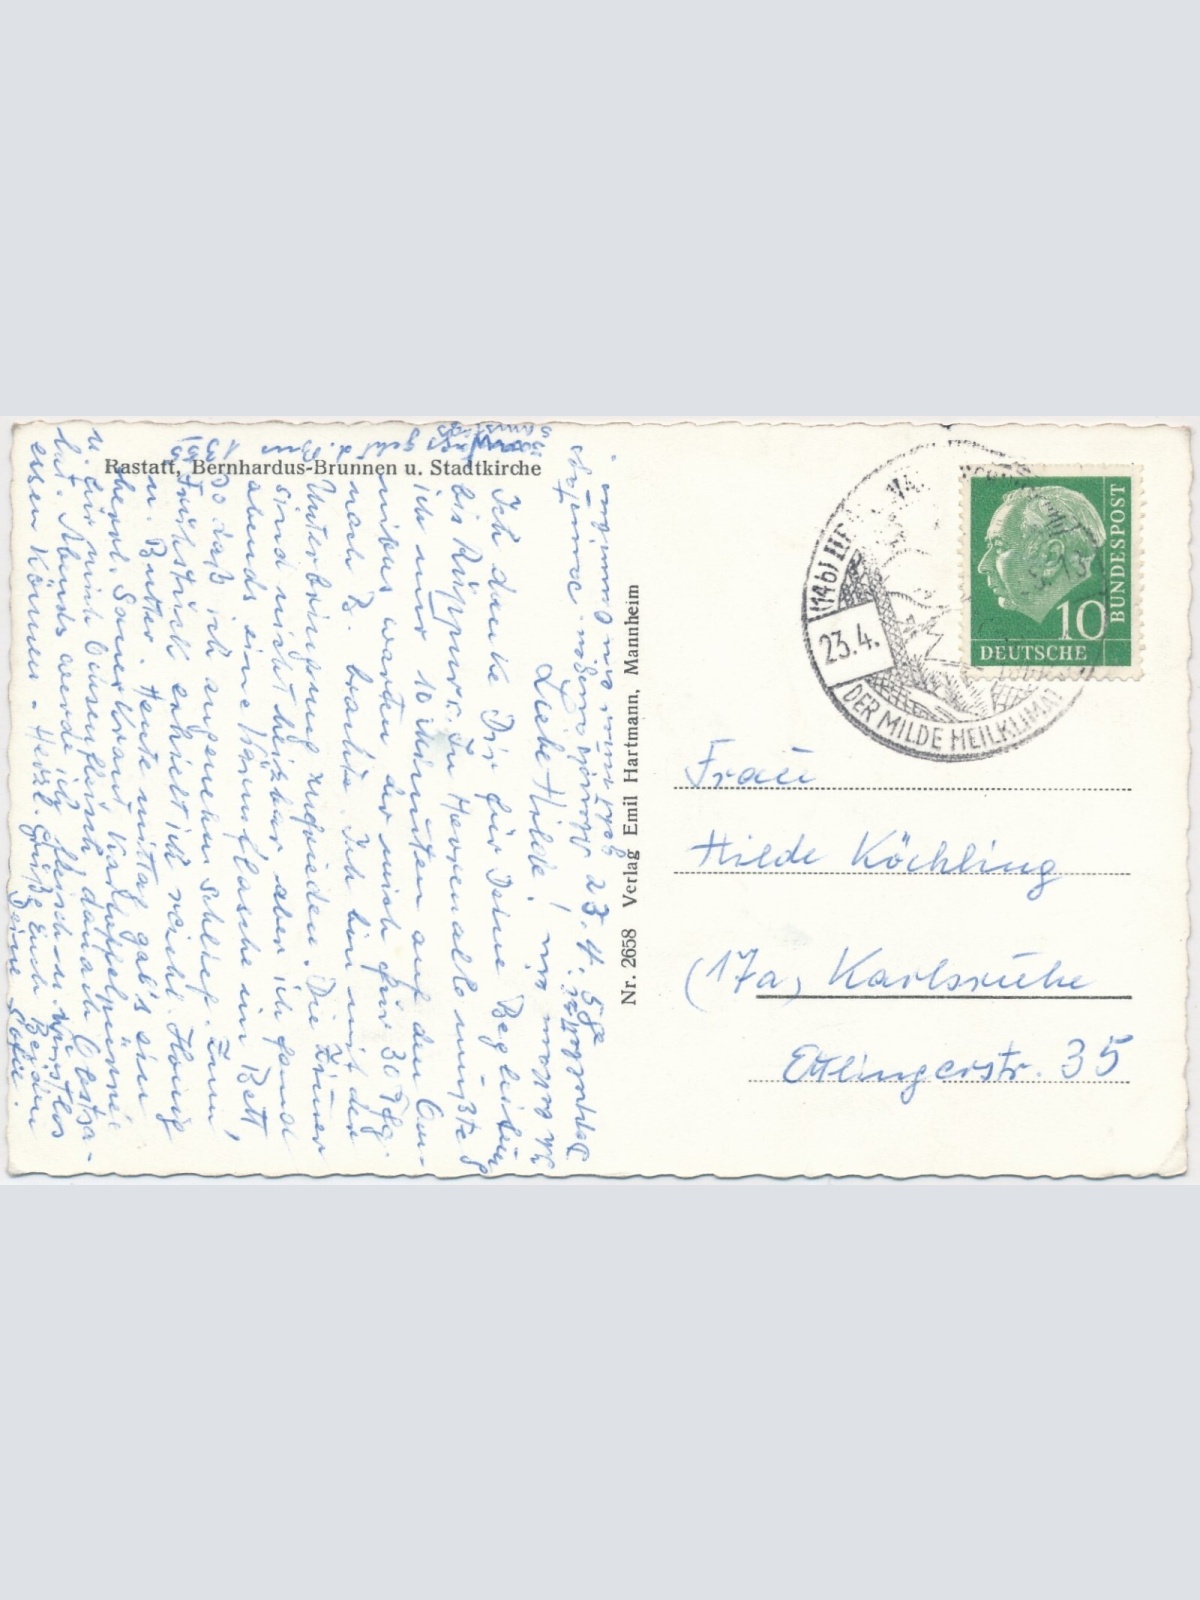 Rastatt, Bernhardus-Brunnen u. Stadtkirche
Nr. 2658 Verlag Emil Hartmann, Mannheim
23. 4. 58
Liebe Hilde!
Ich danke Dir für Deine Beglei-
bis Rüppurr. In Herrenalb mußte
ich nur 10 Minuten auf den Om-
nibus warten der mich für 30 Pfg.
nach brachte. Ich bin mit der
Unterbringung zufrieden. Die Zimmer
sind nicht heizbar aber ich fand
abends eine Wärmflasche im Bett
So daß ich angenehm schlief. Zum
Frühstück erhielt ich reichl. Honig
u. Butter. Heute mittag gab's ein
herrl. Sauerkraut Kartoffel
u. ein danach Obstsa-
lat. Abends werde ich fleisch- u.
essen können. Herzl. Grüße Euch Beiden
Deine
(14b)
23.4.
DER MILDE HEILKLIMAT
10
DEUTSCHE
BUNDESPOST
Frau
Hilde Köchling
(17a) Karlsruhe
Ettlingerstr. 35